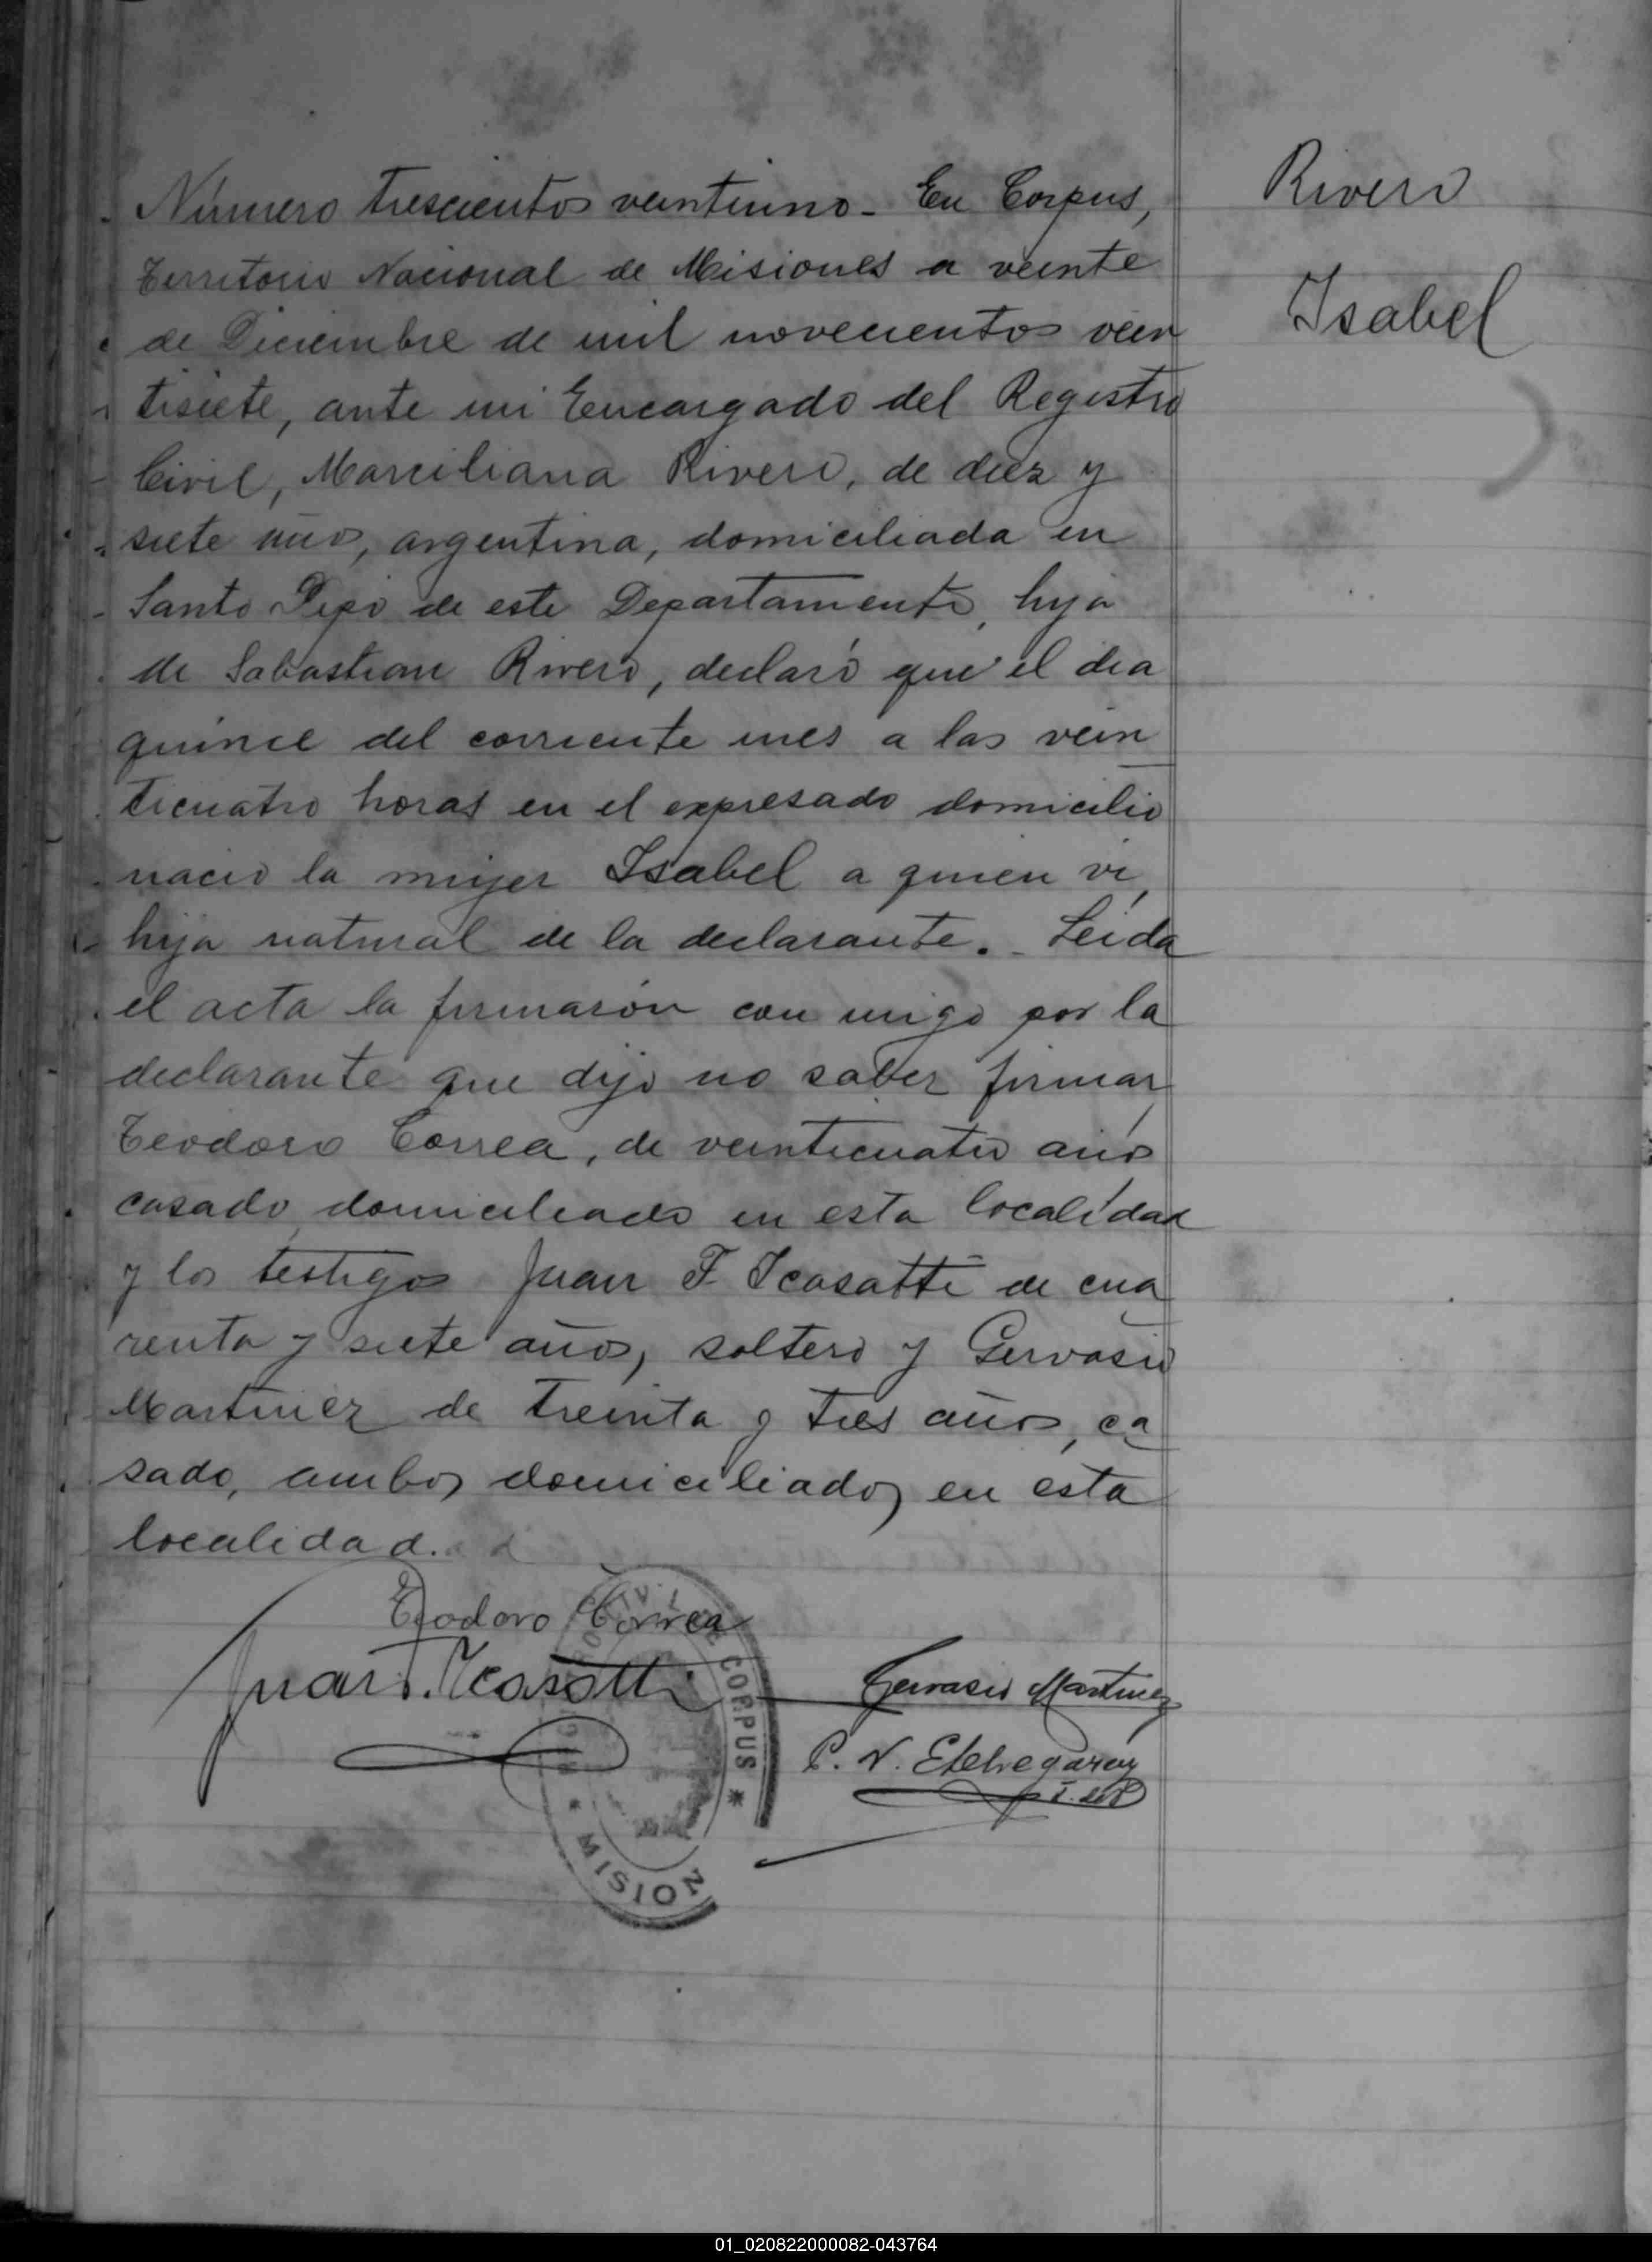 Número trescientos veintiuno - En Corpus,
Territorio Nacional de Misiones a veinte
de Diciembre de mil novecientos vein
tisiete, ante mi Encargado del Registro
Civil, Marciliana Rivero, de diez y
siete años, argentina, domiciliada en
Santo Pipó de este Departamento, hija
de Sabastian Rivero, declaró que el dia
quince del corriente mes a las vein
ticuatro horas en el expresado domicilio
nació la mujer Isabel a quien vi,
hija natural de la declarante. - Leida
el acta la firmarón con migo por la
declarante que dijo no saber firmar
Teodoro Correa, de veinticuatro años
casado domiciliado en esta localidad
y los testigos Juan F. Icasatti de cua
renta y siete años, soltero y Gervasio
Martinez de treinta y tres años, ca
sado, ambos domiciliados en esta
localidad.
Rivero
Isabel
Teodoro Correa
Juan F. Icasatti
Gervasio Martinez
P. N. Etchegaray
CORPUS * MISION
01_020822000082-043764